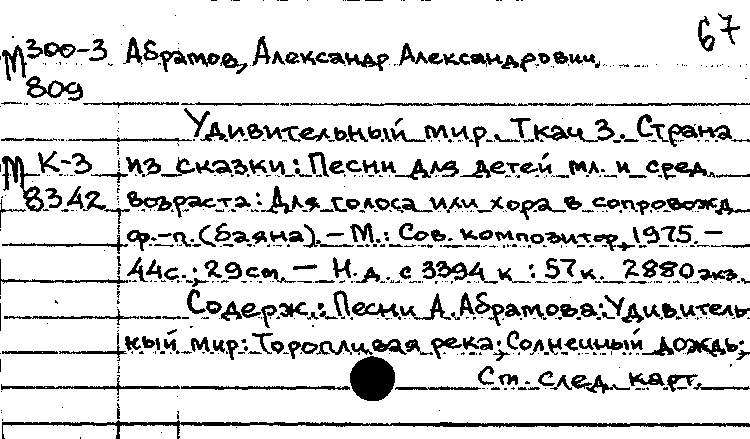 67
М 300-3 Абрамов, Александр Александрович.
809
Удивительный мир. Ткач З. Страна
М К-3 из сказки: Песни для детей мл. и сред.
8342 возраста: Для голоса или хора в сопровожд.
ф.-п. (баяна). – М.: Сов. композитор, 1975. –
44с.; 29см. – Н.д. с 3394 к : 57к. 2880экз.
Содерж.: Песни А. Абрамова: Удивитель-
ный мир: Торопливая река; Солнечный дождь;
См. след. карт.